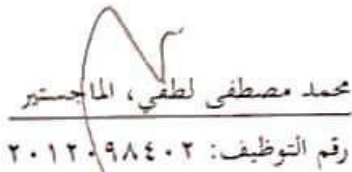 محمد مصطفى لطفي، الماجستير
رقم التوظيف: ٢٠١٢٠٩٨٤٠٢